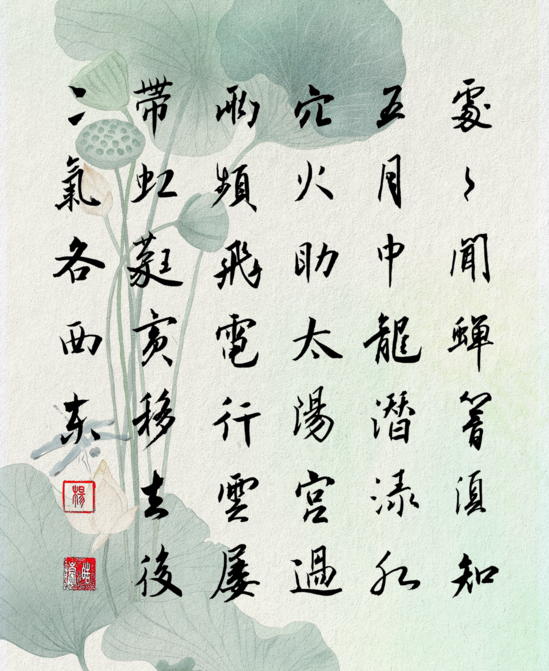 處〻聞蟬響須知
五月中龍潛渌水
穴火助太陽宮過
雨頻飛電行雲屢
帶虹蕤賓移去後
二氣各西東
楊